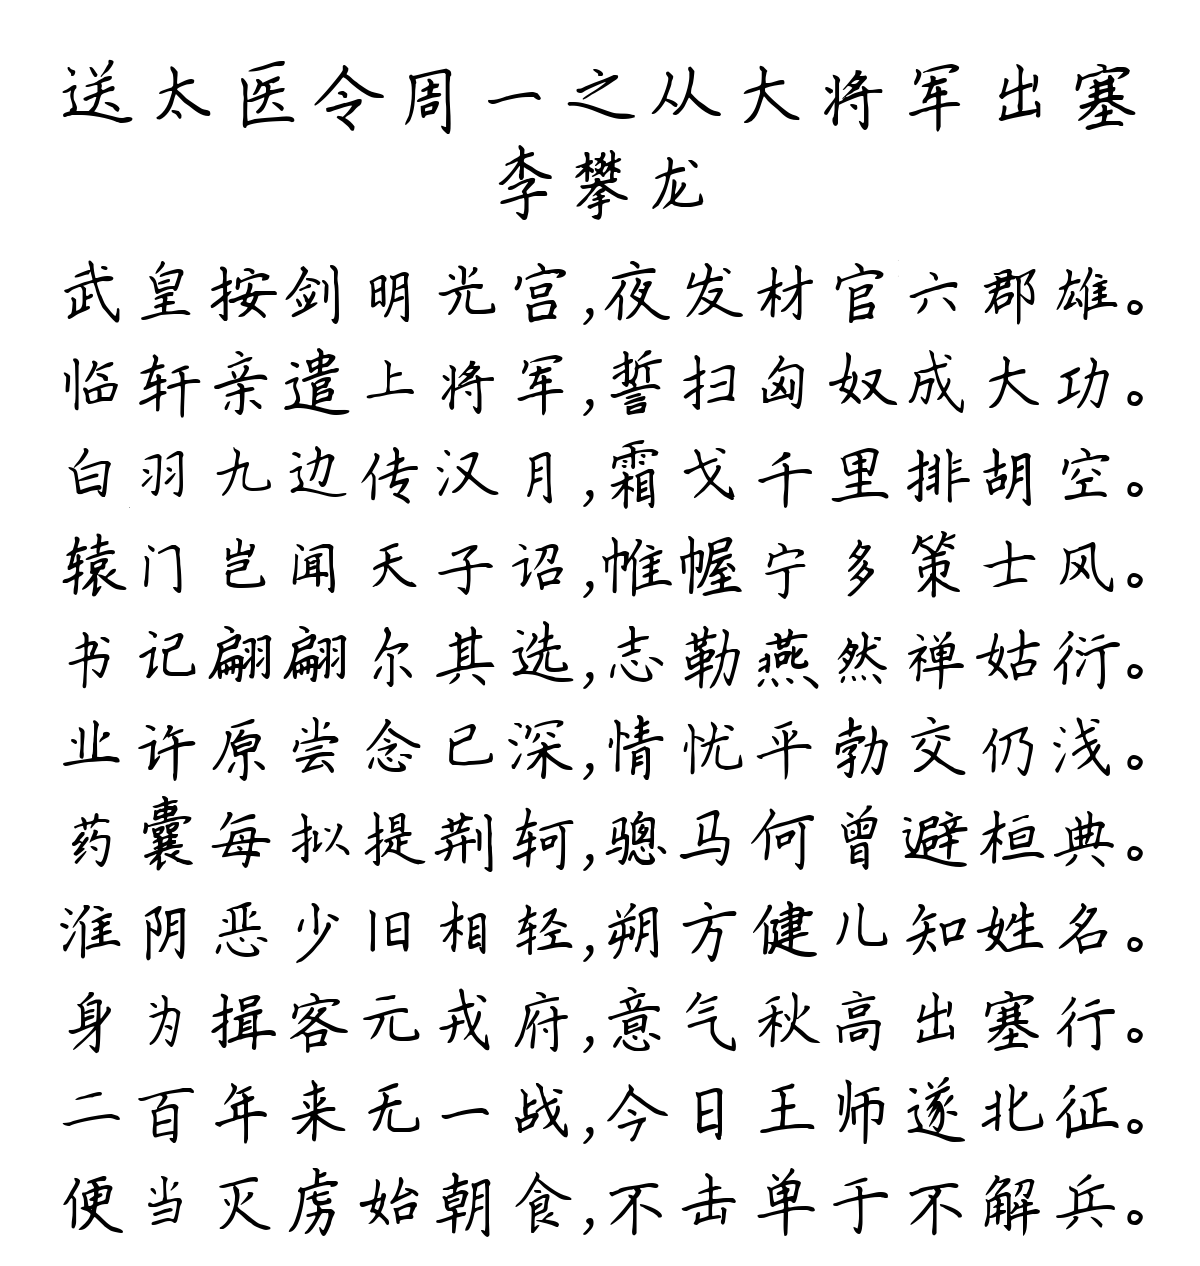 送太医令周一之从大将军出塞
李攀龙
武皇按剑明光宫,夜发材官六郡雄。
临轩亲遣上将军,誓扫匈奴成大功。
白羽九边传汉月,霜戈千里排胡空。
辕门岂闻天子诏,帷幄宁多策士风。
书记翩翩尔其选,志勒燕然禅姑衍。
业许原尝念已深,情忧平勃交仍浅。
药囊每拟提荆轲,骢马何曾避桓典。
淮阴恶少旧相轻,朔方健儿知姓名。
身为揖客元戎府,意气秋高出塞行。
二百年来无一战,今日王师遂北征。
便当灭虏始朝食,不击单于不解兵。